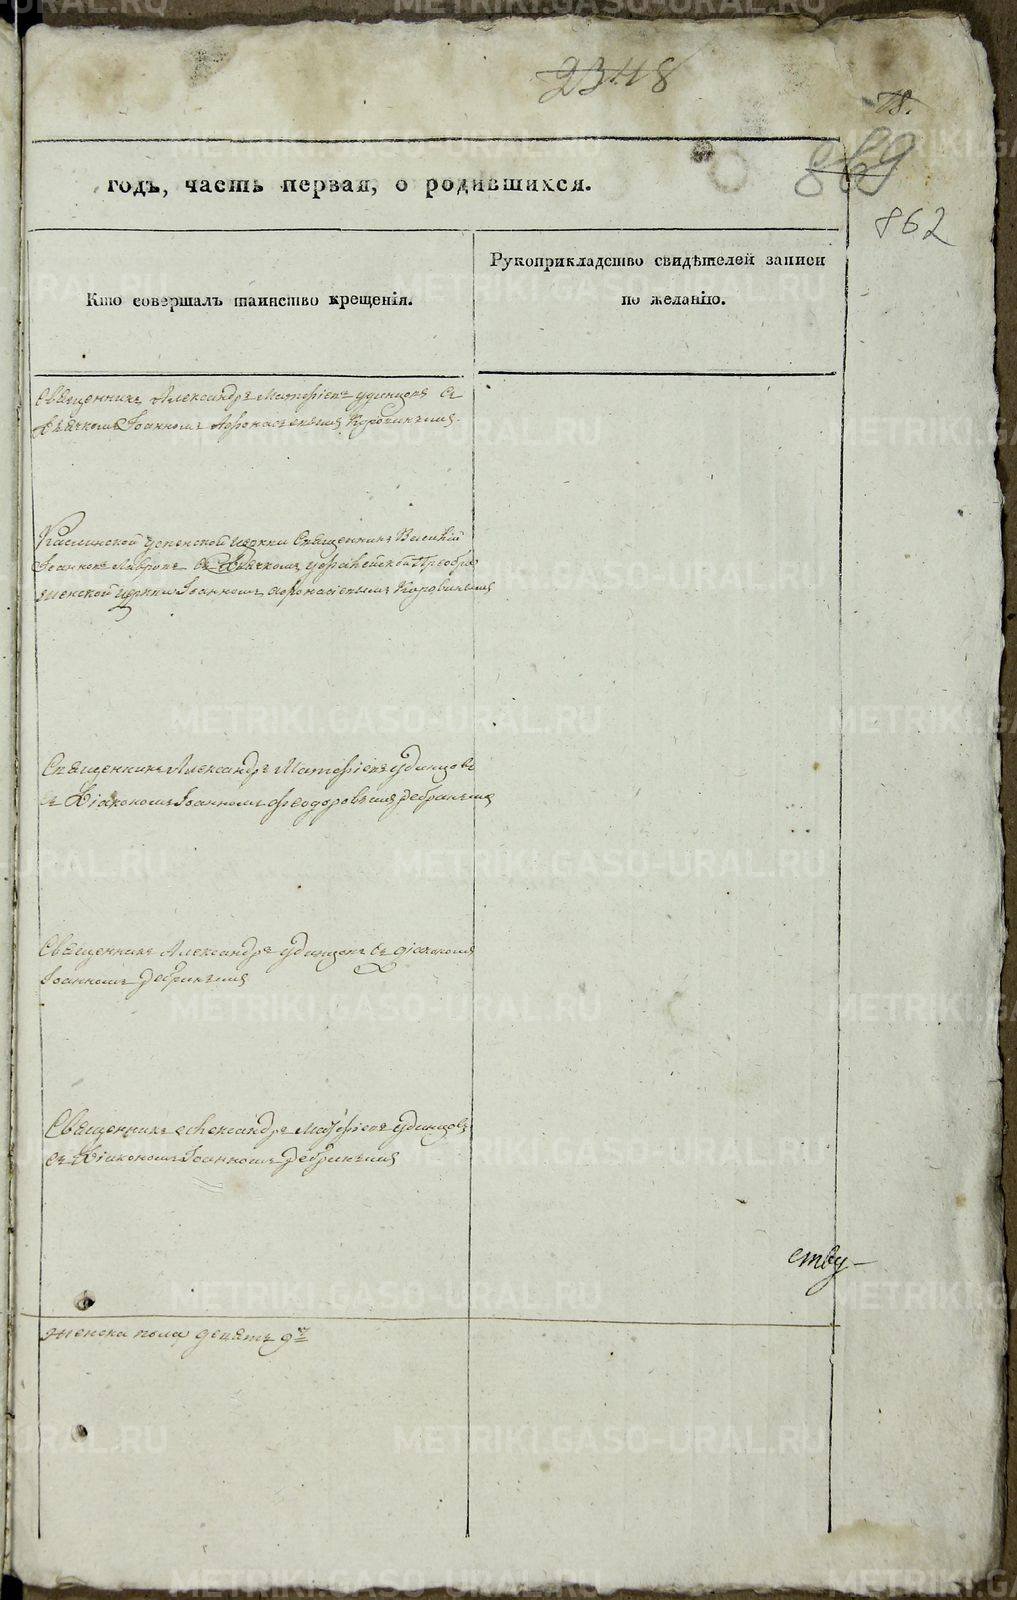 2348
78.
869
862
годъ, часть первая, о родившихся.
Кто совершалъ таинство крещенія.
Рукоприкладство свидѣтелей записи
по желанію.
Священникъ Александръ Матфіевъ Удинцовъ съ
Дьячкомъ Іоанномъ Афонасьевымъ Коровинымъ
Каслинской Успенской церкви Священникъ Василій
Іоанновъ Лавровъ съ Дьячкомъ Преобра
женской церкви Іоанномъ Афонасіевымъ Коровинымъ
Священникъ Александръ Матфіевъ Удинцовъ
съ Діакономъ Іоанномъ Феодоровымъ Дебринымъ
Священникъ Александръ Удинцовъ съ діакономъ
Іоанномъ Дебринымъ
Священникъ Александръ Матфіевъ Удинцовъ
съ Діакономъ Іоанномъ Дебринымъ
ству
женска пола девять 9
METRIKI.GASO-URAL.RU